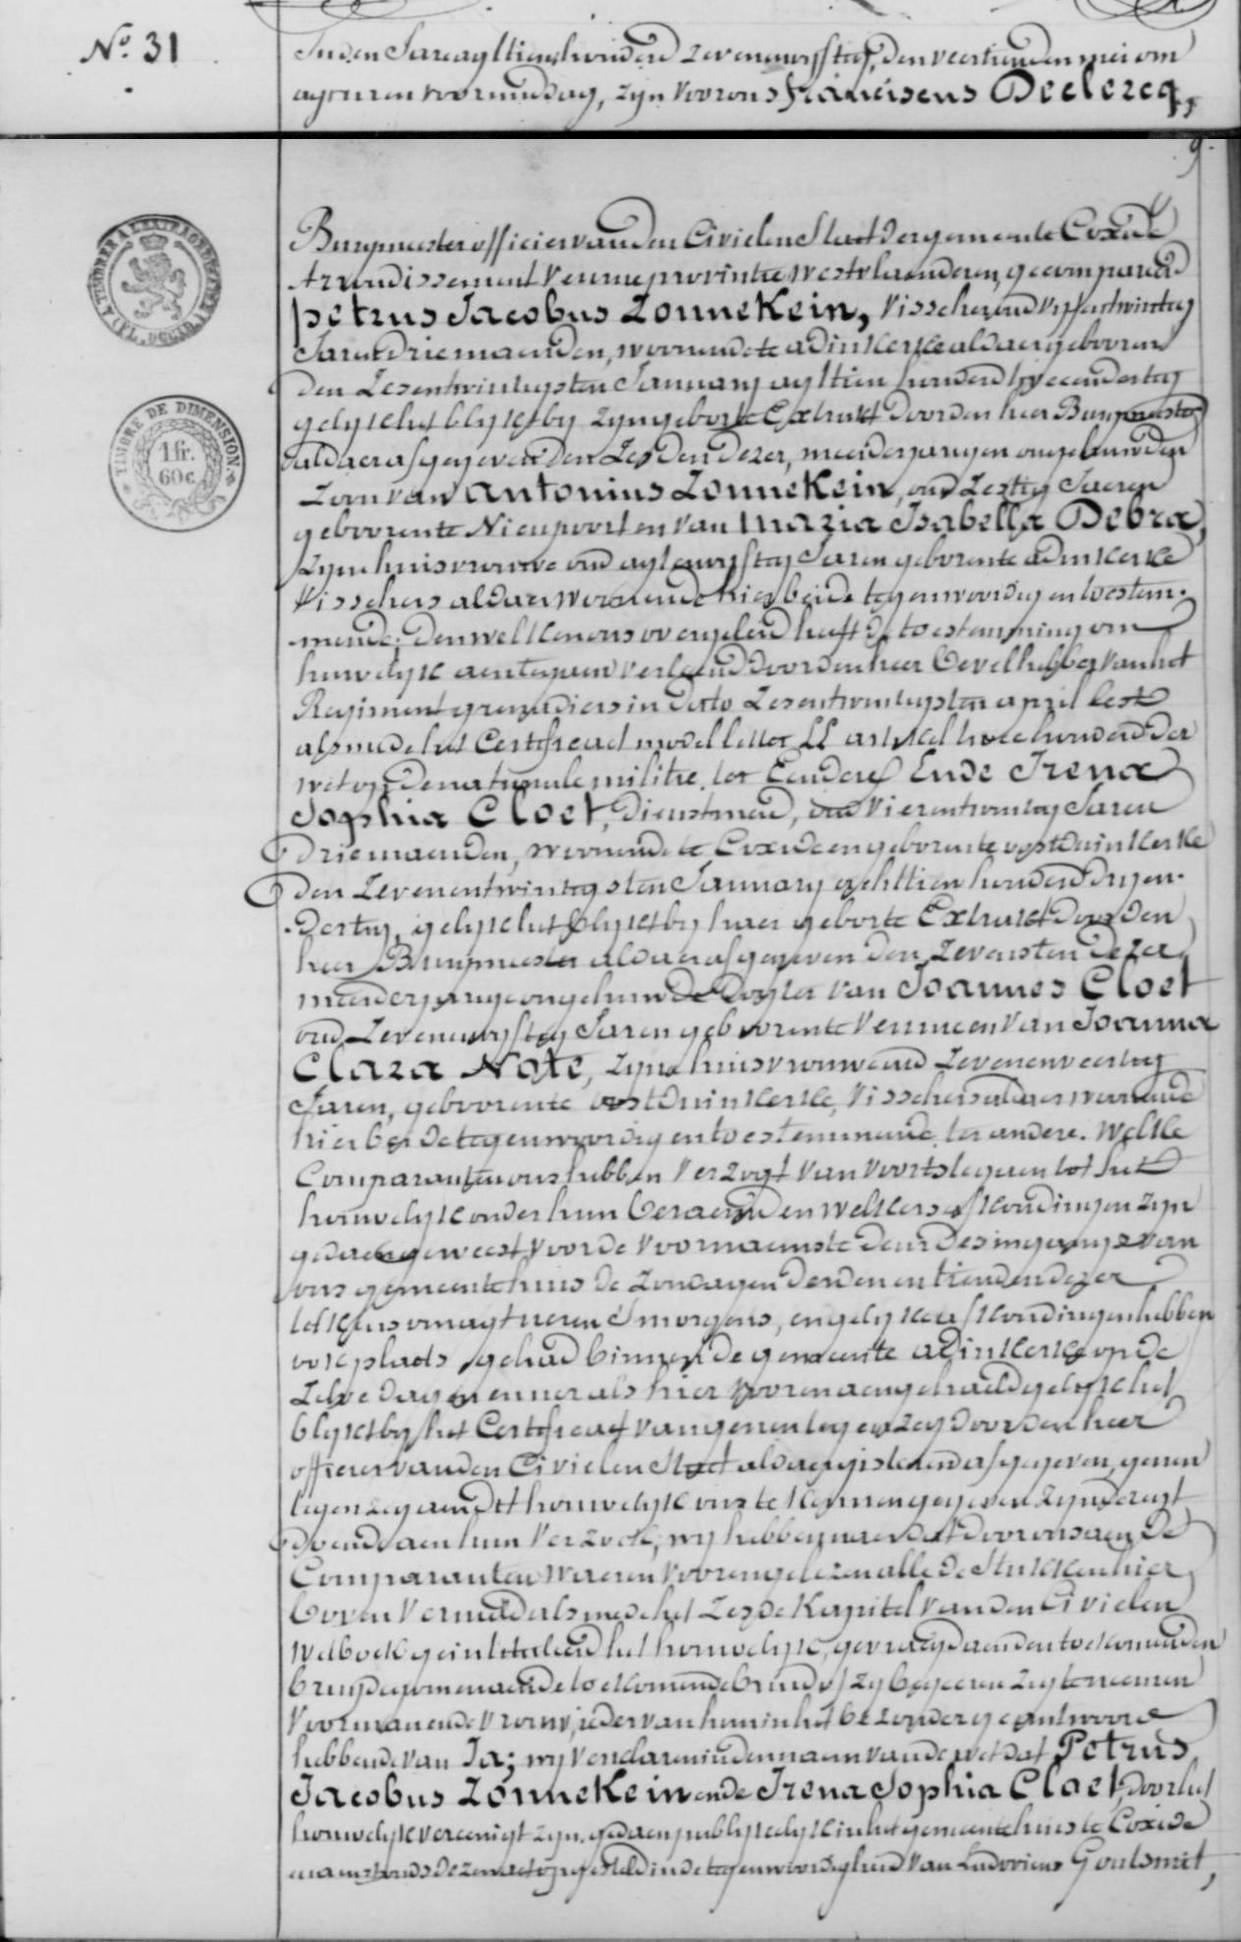 N.º 31
In den Jare agttien honderd zevenenvyftig, den veertienden mei om
agt uren voormiddag, zyn voor ons franciscus Declercq,
9.
Burgmeester officier van den Civielen Staet der gemeente Coxide
Arrondissement Veurne provintie Westvlaenderen, gecompareerd
petrus Jacobus Zonnekein, Visscher oud vyfentwintig
Jaren drie maenden, woonende te adinkerke aldaer gebooren
den Zesentwintigsten January agttien honderd tweeendertig
gelyk het blykt by zyn geborte Extrakt door den heer Burgmeester
aldaer afgegeven den Zesden dezer, meerderjarigen ongehuwden
Zoon van antonius Zonnekein, oud Zestig Jaeren
geboorente Nieupoort en van maria Isabella Debra,
Zyne huisvrouwe oud agtenvyftig Jaren geborente adinkerke
Visschers aldaer woonende hier beide tegenwoordig en toestem-
mende; denwelken ons overgeleid heeft de toestemming om
huwelyk aentegaen verleend door den heer Bevelhebber van het
Regiment grenadiers in dato Zesentwintigsten april lest
alsmede het Certificaet model letter LL artikel twee honderd der
wet op de nationale militie. ter Eendere Ende Irena
Sophia Cloet, dienstmeid, oud Vierentwintig Jaren
drie maenden, woonende te Coxide en geborente oostduinkerke
den Zevenentwintigsten January achttien honderd dryen-
dertig, gelyk het blykt by haer geborte Extrakt door den
heer Burgmeester aldaer afgegeven den Zevensten dezer
meerderjarige ongehuwde Dogter van Joannes Cloet
oud Zevenenvyftig Jaren geboorente Veurne en van Joanna
Clara Note, zyne huisvrouwe oud Zevenenveertig
Jaren, geboorente oostduinkerke, Visschers aldaer woonende
hier beide tegenwoordig en toestemmende ter andere. Welke
Comparanten ons hebben Verzogt van voortstegaen tot het
houwelyk onder hun beraemd en welkers afkondingen zyn
gedaen geweest voor de voornaemste deur des ingangs van
ons gemeentehuis de Zondagen derden en tienden dezer
telkens om agt ueren 's morgens, en gelyke afkondingen hebben
ook plaets gehad binnen de gemeente adinkerke op de
Zelve dagen en uer als hier vooren aengehaeld gelyk het
blykt by het Certificaet van geenen tegenzeg door den heer
officier van den Civielen Staet aldaer gisteren afgegeven, geenen
tegenzeg aen dit houwelyk ons te kennen gegeven zynde regt
doende aen hun Verzoek, wy hebben naer dat door ons aen de
Comparanten waeren voorengelezen alle de Stukken hier
boven vermeld alsmede het Zesde Kapitel van den Civielen
Wetboek geintituleerd het houwelyk, gevraegd aen den toekomenden
bruydegom en aen de toekomende bruid of zy begeeren zig te neemen
Voor man ende vrouw, ieder van hun in het bezonder geantwoord
hebbende van Ja; wy verclaeren in den naem van de wet dat Petrus
Jacobus Zonnekein ende Irena Sophia Cloet, door het
houwelyk vereenigt zyn. gedaen publykelyk in het gemeentehuis te Coxide
waer Dezen opgesteld in de tegenwoordigheid van Ludovicus Goutsmit,
TIMBRE DE DIMENSION
1 fr.
60 c.